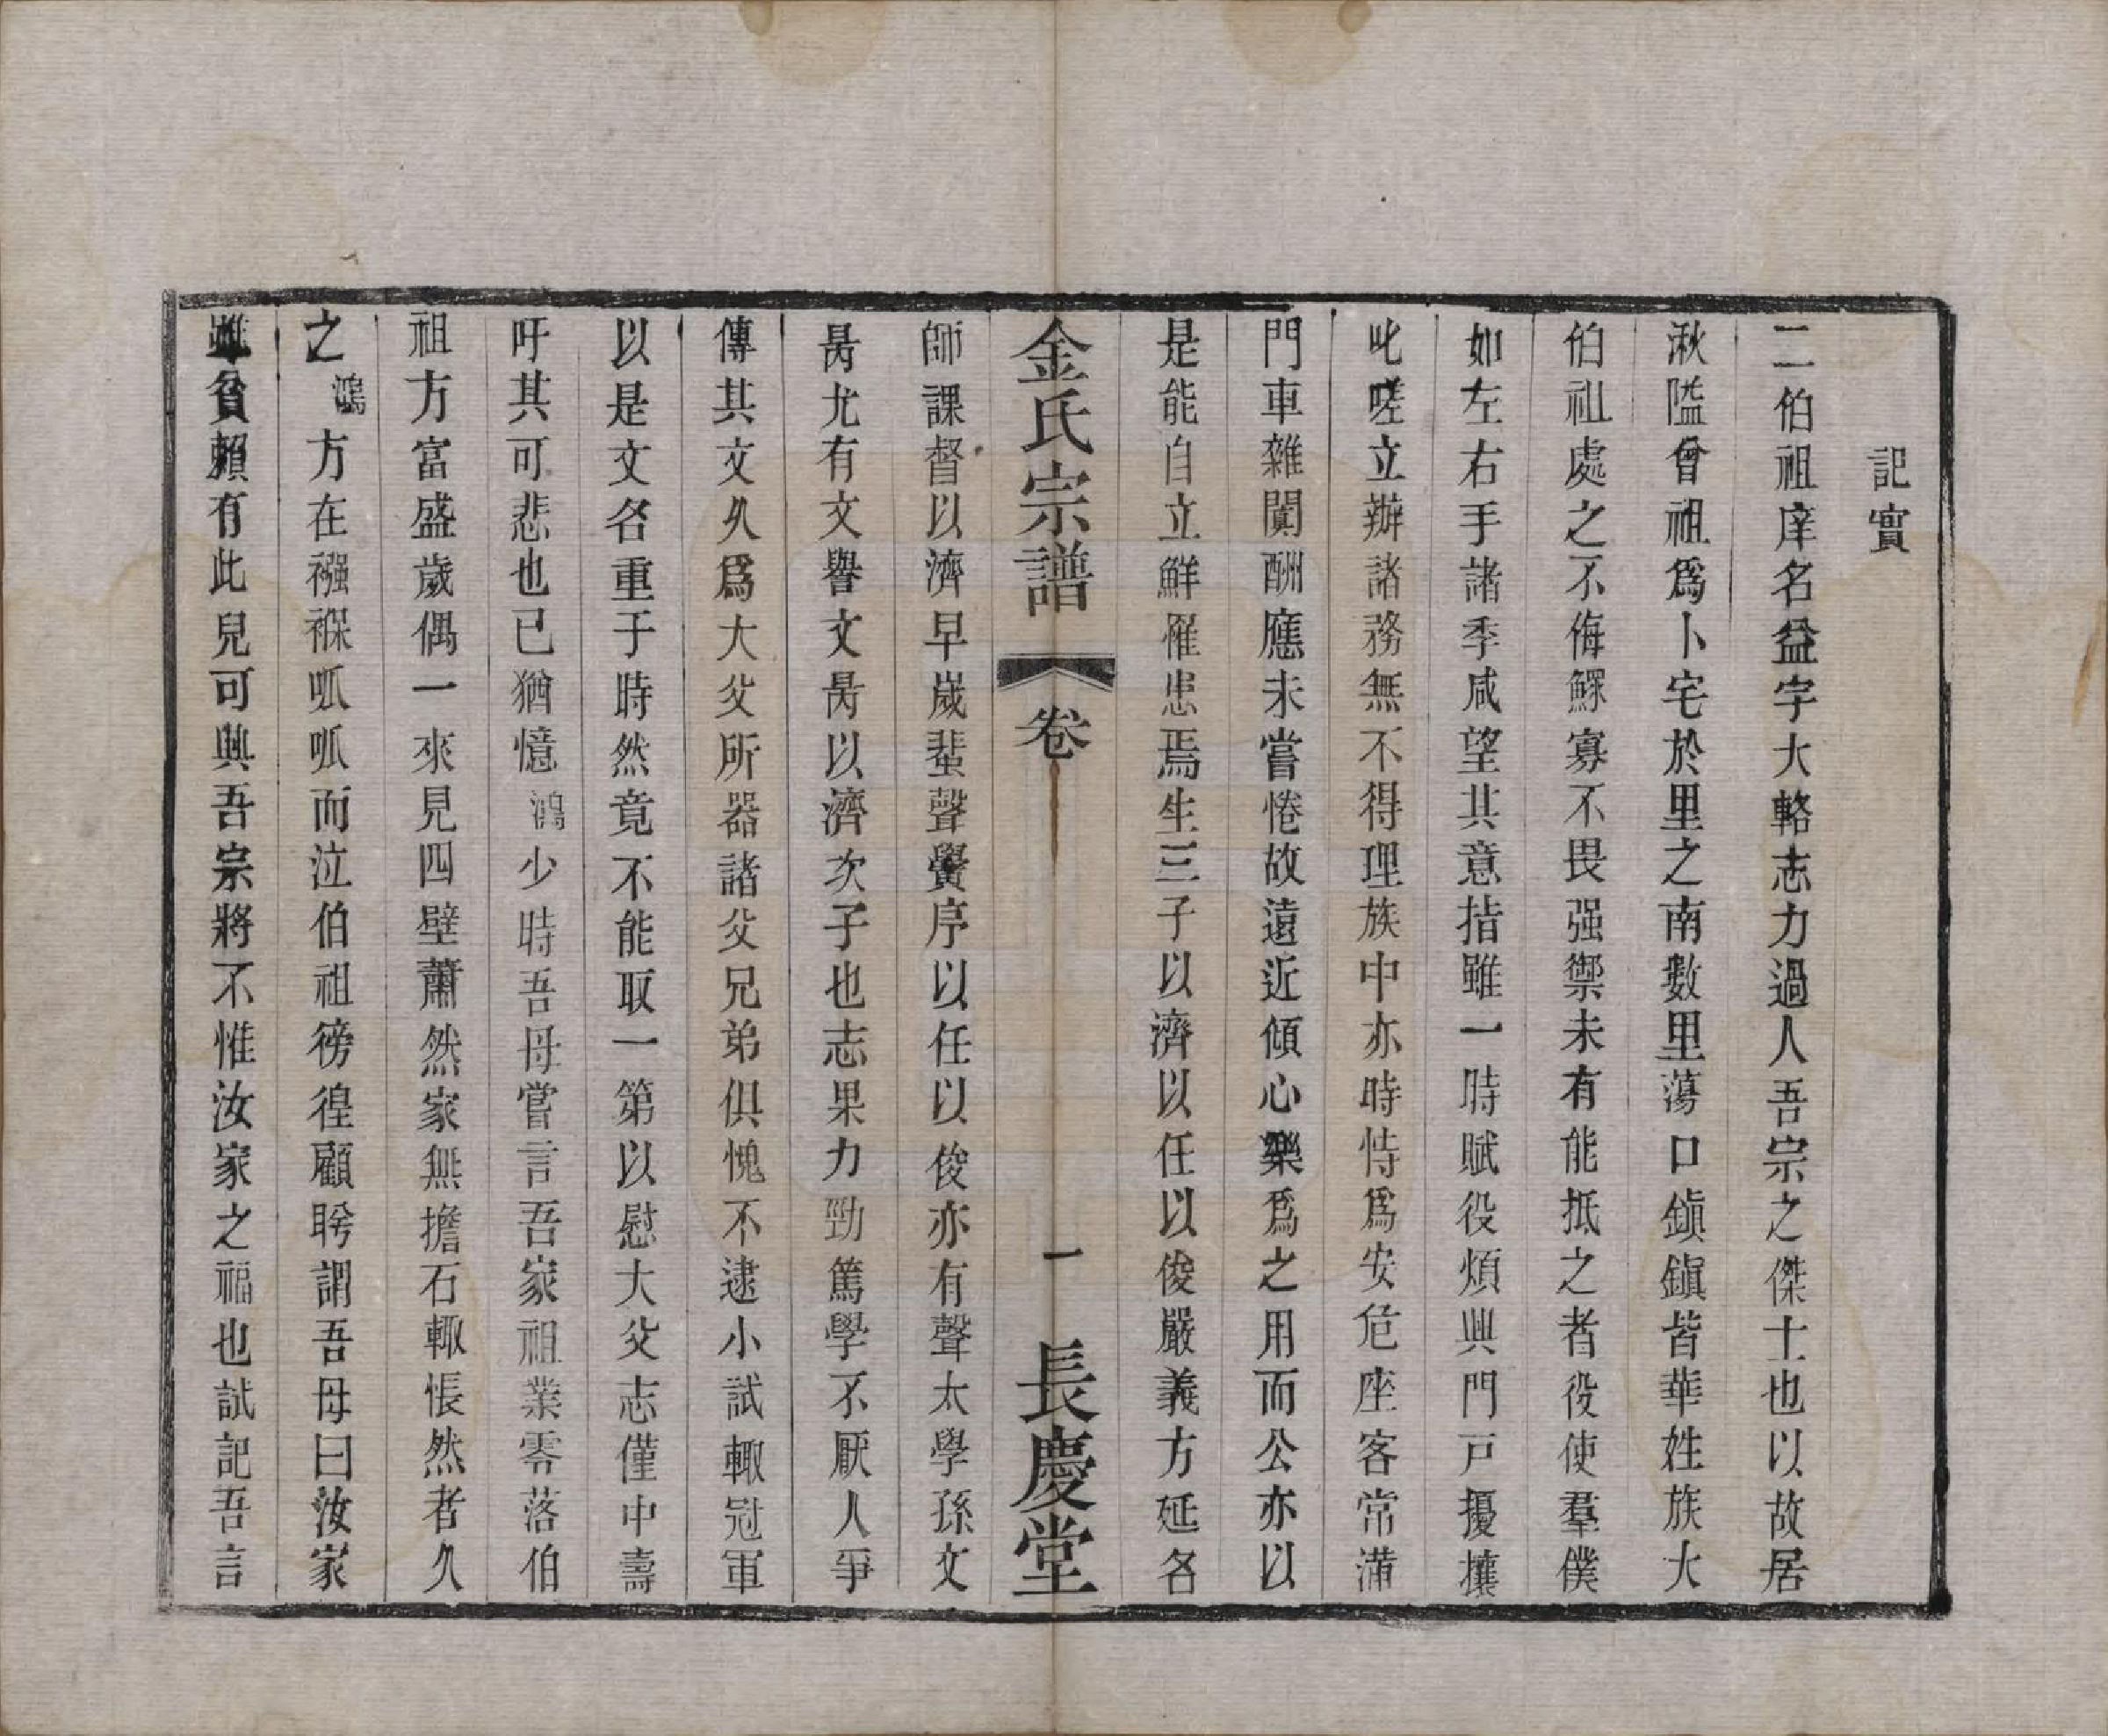 記實
二伯祖庠名益字大輅志力過人吾宗之傑士也以故居
湫隘曾祖爲卜宅於里之南數里蕩口鎮鎮皆華姓族大
伯祖處之不侮鰥寡不畏强禦未有能抵之者役使羣僕
如左右手諸季咸望其意指雖一時賦役煩興門戸擾攘
叱嗟立辦諸務無不得理族中亦時恃爲安危座客常滿
門車雜闐酬應未嘗惓故遠近傾心樂爲之用而公亦以
是能自立鮮罹患焉生三子以濟以任以俊嚴義方延名
金氏宗譜 卷 一 長慶堂
師課督以濟早歲蜚聲黌序以任以俊亦有聲太學孫文
昺尤有文譽文昺以濟次子也志果力勁篤學不厭人爭
傳其文久爲大父所器諸父兄弟俱愧不逮小試輙冠軍
以是文名重于時然竟不能取一第以慰大父志僅中壽
吁其可悲也已猶憶鴻少時吾母嘗言吾家祖業零落伯
祖方富盛歲偶一來見四壁蕭然家無擔石輙悵然者久
之鴻方在襁褓呱呱而泣伯祖徬徨顧盻謂吾母曰汝家
雖貧賴有此兒可興吾宗將不惟汝家之福也試記吾言